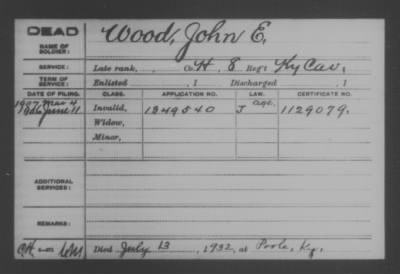 DEAD Wood, John E,
NAME OF SOLDIER:
SERVICE: Late rank, , Co. H, 8 Reg't Ky Cav,
TERM OF SERVICE: Enlisted , 1 Discharged 1
DATE OF FILING. CLASS. APPLICATION NO. LAW. CERTIFICATE NO.
1907 Mar 4 Age,
June 11 Invalid, 1349540 J 1129079.
Widow,
Minor,
ADDITIONAL SERVICES:
REMARKS:
Died July 13, 1932, at Poole, Ky.